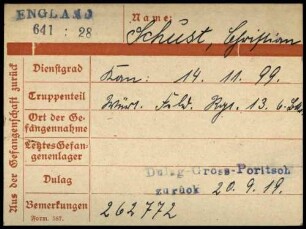 ENGLAND
641 : 28
Name:
Schust, Christian
Aus der Gefangenschaft zurück
Dienstgrad Kan: 14. 11. 99.
Truppenteil Würt. Feld. Rgt. 13. 6.
Ort der Gefängennahme
Letztes Gefangenenlager
Dulag Dulag-Gross-Poritsch
zurück 20. 9. 19.
Bemerkungen 262772
Form. 107.